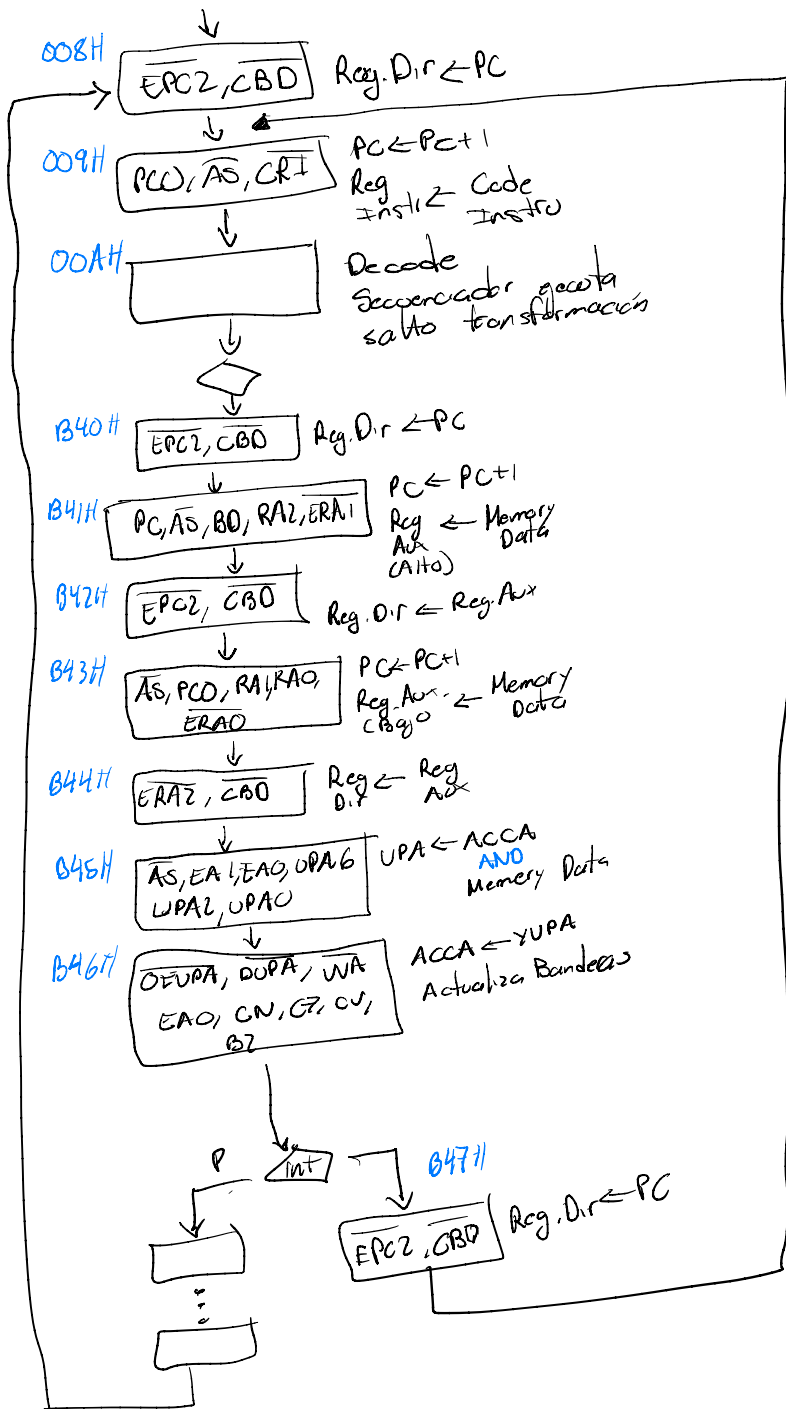 008H
E̅P̅C̅2̅, C̅B̅D̅ Reg.Dir ← PC
009H
PC0, A̅S̅, C̅R̅I̅ PC ← PC+1
Reg Instr ← Code Instru
00AH
Decode
Secuenciador ejecuta
salto transformación
B40H
E̅P̅C̅2̅, C̅B̅D̅ Reg.Dir ← PC
B41H
PC, A̅S̅, BD, RA2, E̅R̅A̅1̅ PC ← PC+1
Reg Aux (Alto) ← Memory Data
B42H
E̅P̅C̅2̅, C̅B̅D̅ Reg.Dir ← Reg.Aux
B43H
A̅S̅, PC0, RA1, RA0, PC ← PC+1
E̅R̅A̅0̅ Reg.Aux. (Bajo ← Memory Data
B44H
E̅R̅A̅2̅, C̅B̅D̅ Reg Dir ← Reg Aux
B45H
A̅S̅, EA1, EA0, UPA6 UPA ← ACCA
UPA2, UPA0 AND
Memory Data
B46H
O̅E̅U̅P̅A̅, D̅U̅P̅A̅, ACCA ← YUPA
EA0, CN, CZ, CV, Actualiza Banderas
B2
P int B47H
E̅P̅C̅2̅, C̅B̅D̅ Reg.Dir ← PC